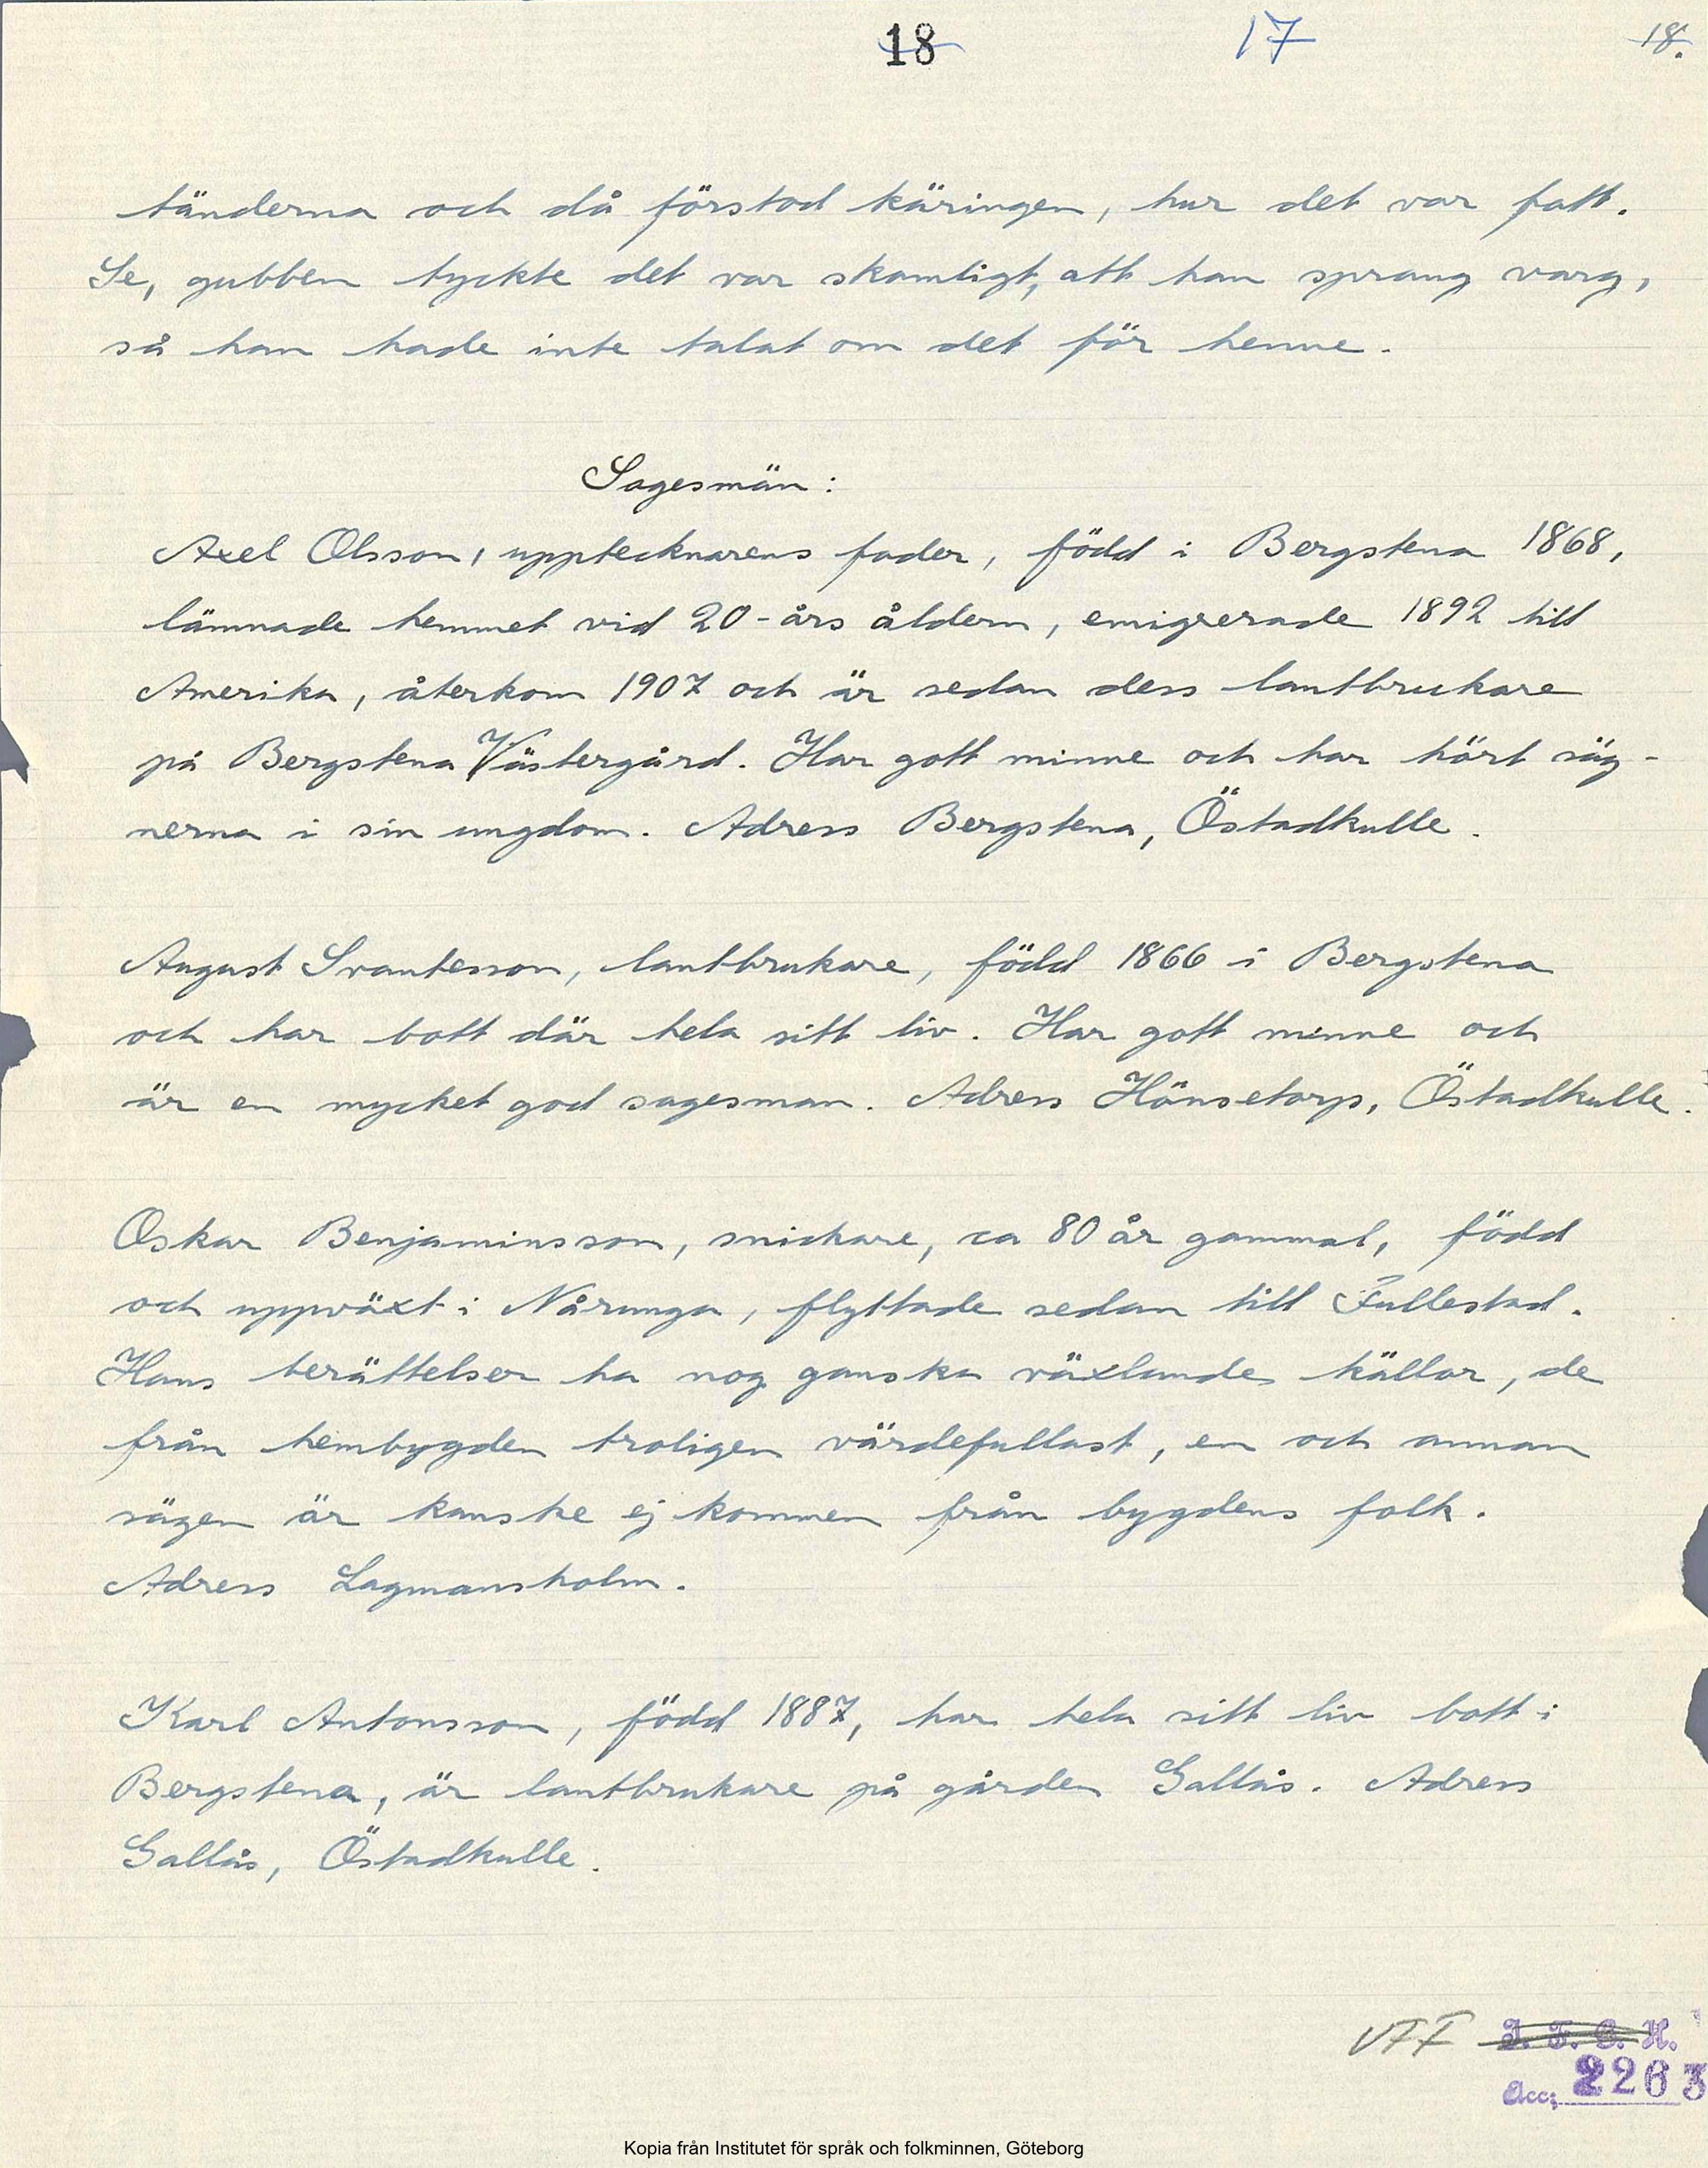 18 17 18.
tänderna och då förstod käringen, hur det var fatt.
Se, gubben tyckte det var skamligt, att han sprang varg,
så han hade inte talat om det för henne.
Sagesmän:
Axel Olsson, upptecknarens fader, född i Bergstena 1868,
lämnade hemmet vid 20-års åldern, emigrerade 1892 till
Amerika, återkom 1907 och är sedan dess lantbrukare
på Bergstena Västergård. Har gott minne och har hört säg-
nerna i sin ungdom. Adress Bergstena, Östadkulle.
August Svantesson, lantbrukare, född 1866 i Bergstena
och har bott där hela sitt liv. Har gott minne och
är en mycket god sagesman. Adress Hönsetorp, Östadkulle.
Oskar Benjaminsson, snickare, ca 80 år gammal, född
och uppväxt i Nårunga, flyttade sedan till Fullestad.
Hans berättelser ha nog ganska växlande källor, de
från hembygden troligen värdefullast, en och annan
sägen är kanske ej kommen från bygdens folk.
Adress Lagmansholm.
Karl Antonsson, född 1887, har hela sitt liv bott i
Bergstena, är lantbrukare på gården Gallås. Adress
Gallås, Östadkulle.
VFF I. F. G. H.
Acc; 2263
Kopia från Institutet för språk och folkminnen, Göteborg